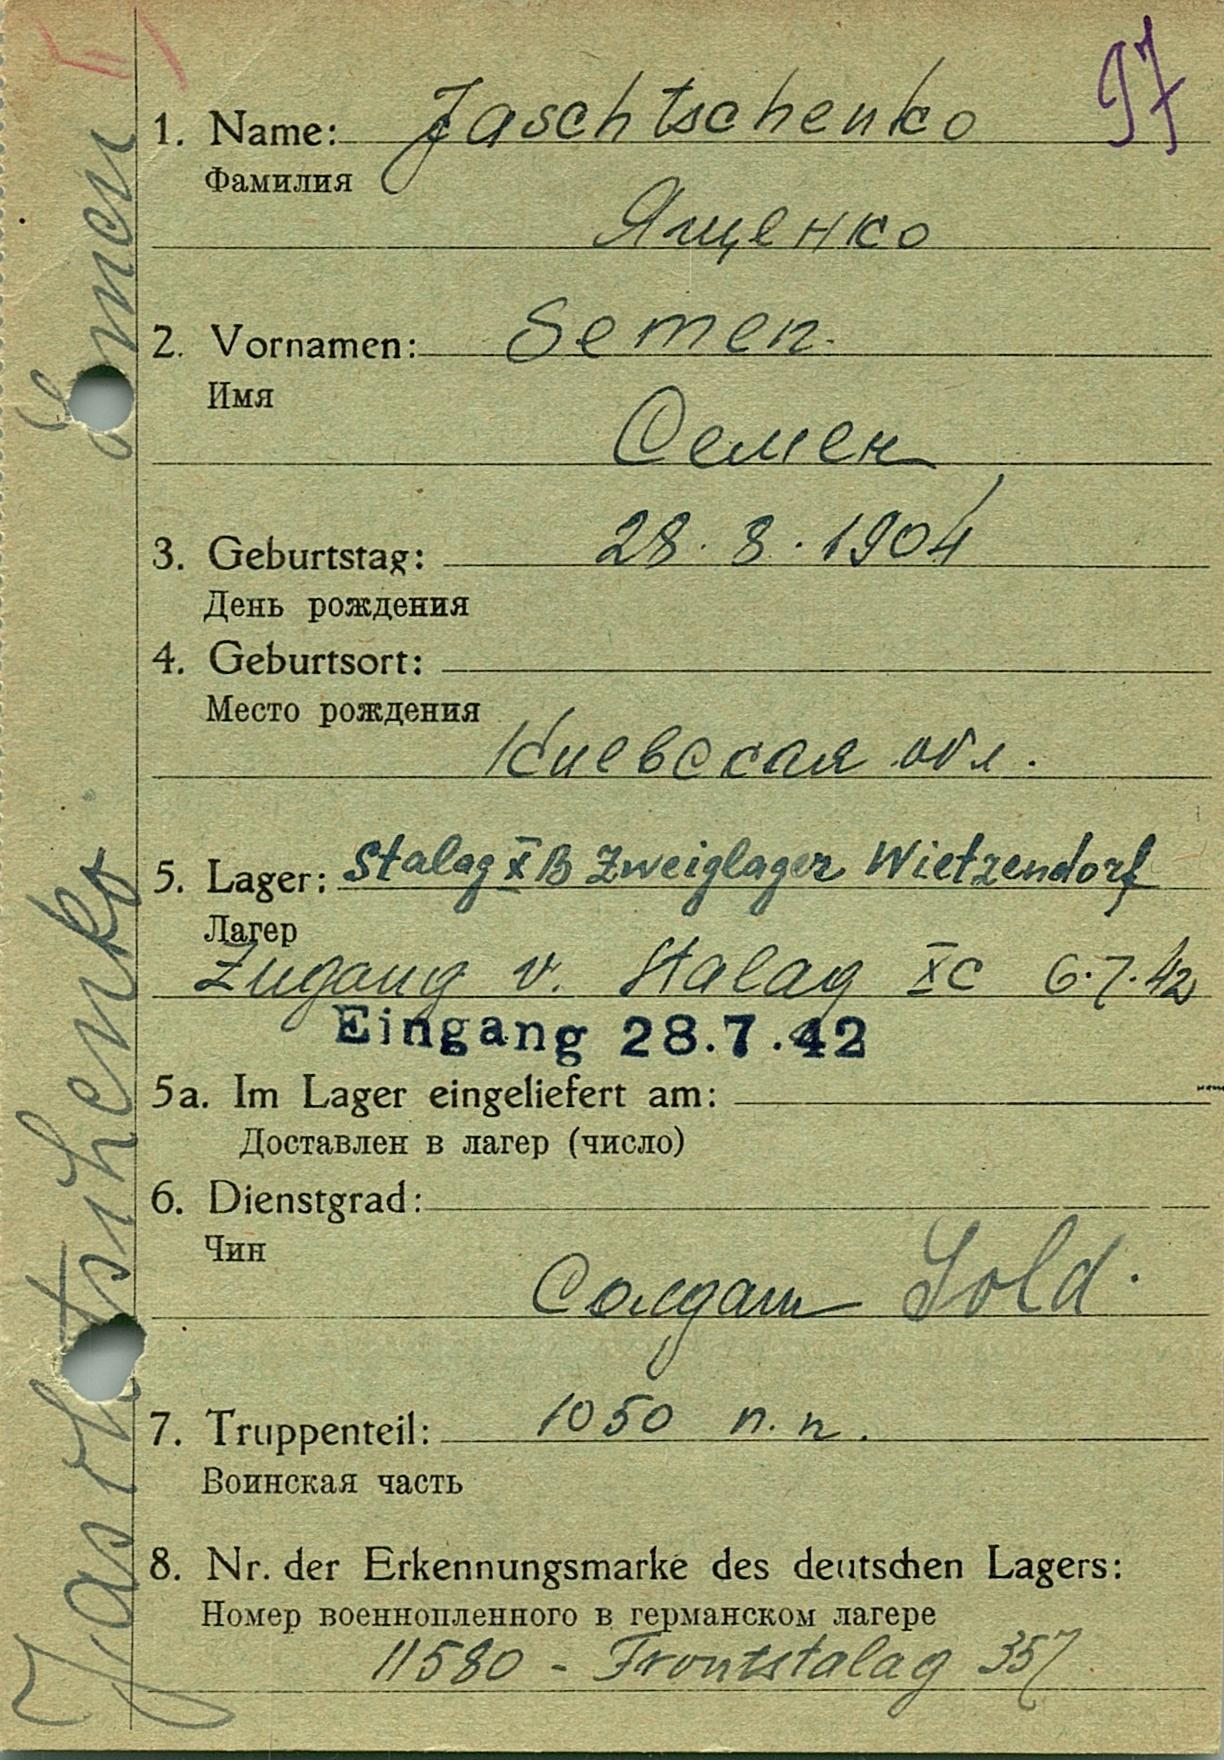 97
1. Name: Jaschtschenko
Фамилия
Ященко
2. Vornamen: Semen.
Имя
Семен
3. Geburtstag: 28. 8. 1904
День рождения
4. Geburtsort:
Место рождения
Киевская обл.
5. Lager: Stalag X B Zweiglager Wietzendorf
Лагер
Zugang v. Stalag XC 6.7.42
Eingang 28.7.42
5a. Im Lager eingeliefert am:
Доставлен в лагер (число)
6. Dienstgrad:
Чин
Солдат Sold.
7. Truppenteil: 1050 п. п.
Воинская часть
8. Nr. der Erkennungsmarke des deutschen Lagers:
Номер военнопленного в германском лагере
11580 - Frontstalag 357
Jaschtschenko Semen